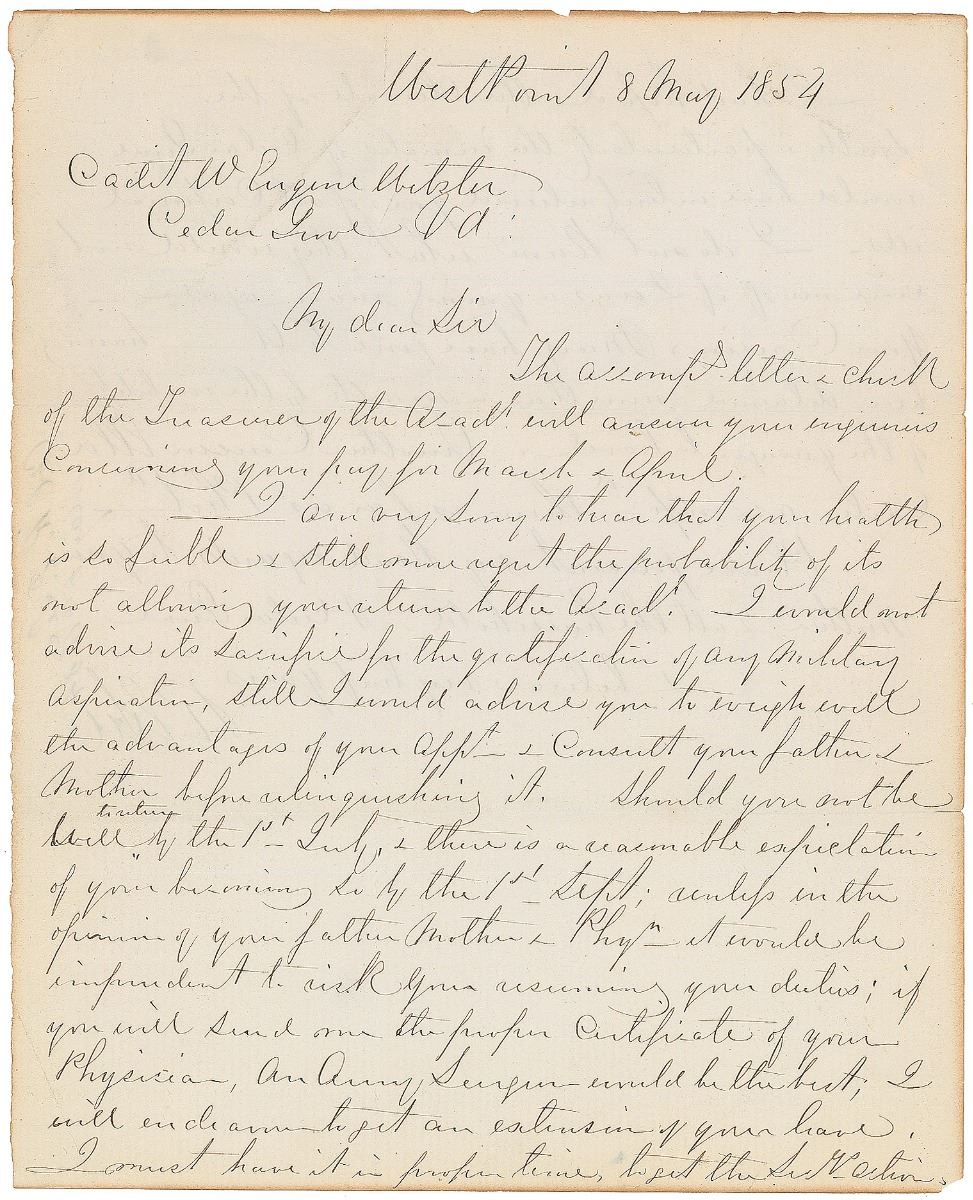 West Point 8 May 1854
Cadet W Eugene Webster
Cedar Grove Va.
My dear Sir
The accompd. letter & check
of the Treasurer of the Acady. will answer your enquiries
Concerning your pay for March & April.
I am very sorry to hear that your health
is so feeble & still more regret the probability of its
not allowing your return to the Acady. I would not
advise its sacrifice for the gratification of any Military
aspiration, still I would advise you to weigh well
the advantages of your appt. & Consult your father &
Mother before relinquishing it. Should you not be
well to return by the 1st July, & there is a reasonable expectation
of your becoming so by the 1st Sept; unless in the
opinion of your father Mother & Phyn it would be
imprudent to risk your resuming your duties; if
you will send me the proper Certificate of your
Physician, An Army Surgeon would be the best; I
will endeavour to get an extension of your leave.
I must have it in proper time, to get the action.